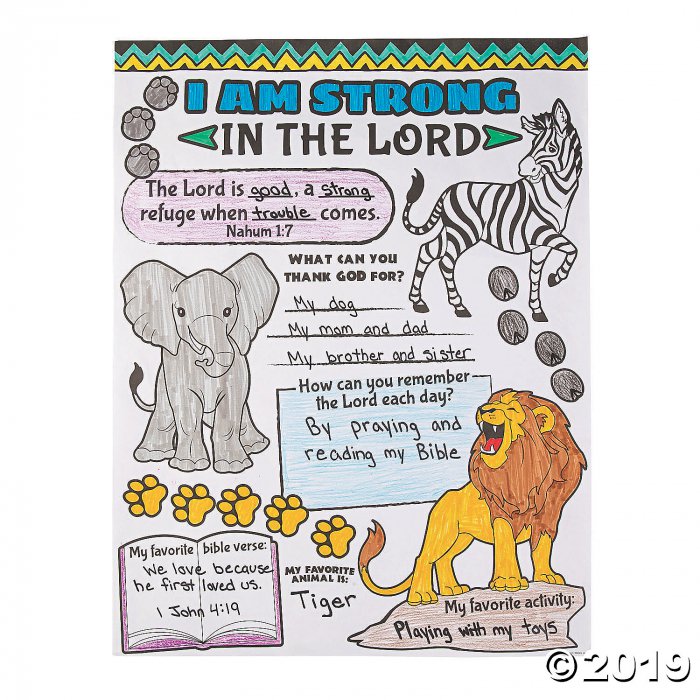 I AM STRONG
IN THE LORD
The Lord is good, a strong
refuge when trouble comes.
Nahum 1:7
WHAT CAN YOU
THANK GOD FOR?
My dog
My mom and dad
My brother and sister
How can you remember
the Lord each day?
By praying and
reading my Bible
My favorite bible verse:
We love because
he first loved us.
1 John 4:19
MY FAVORITE
ANIMAL IS:
Tiger
My favorite activity:
Playing with my toys
©2019